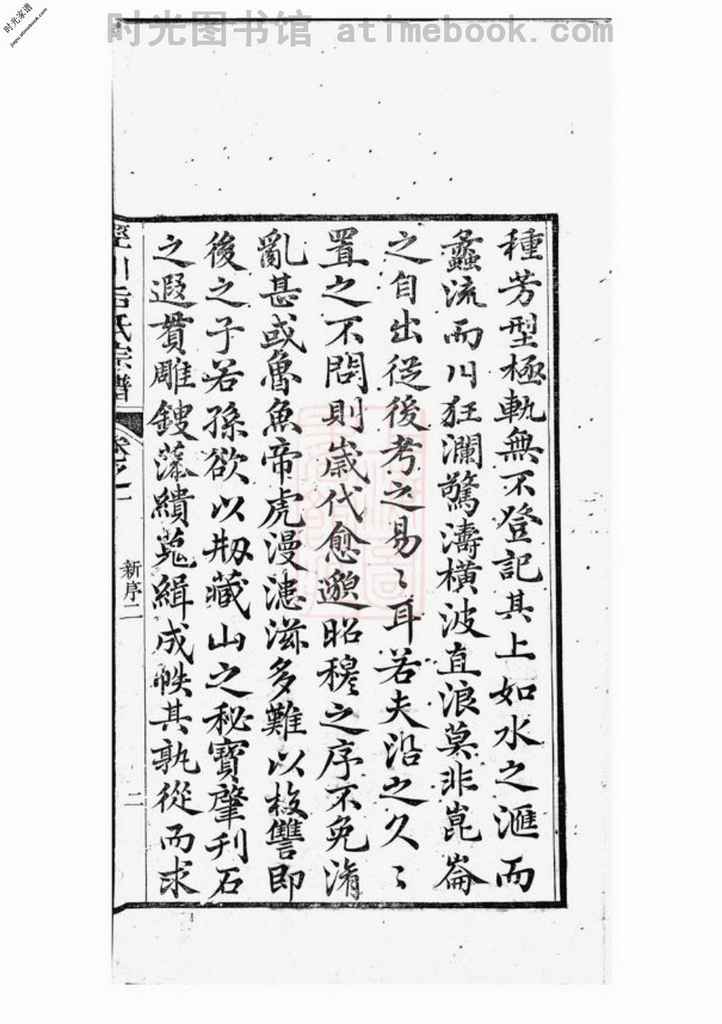 时光图书馆 atimebook.com
时光家谱
jiapu.atimebook.com
種芳型極軌無不登記其上如水之滙而
蠡流而川狂瀾驚濤橫波直浪莫非崑崙
之自出從後考之易〻耳若夫沿之久〻
置之不問則歲代愈邈昭穆之序不免淆
亂甚或魯魚帝虎漫漶滋多難以校讐即
後之子若孫欲以刱藏山之秘寶肇刋石
之遐貫雕鋑藻繢蒐緝成帙其孰從而求
川 氏宗譜
卷之一
新序二
二